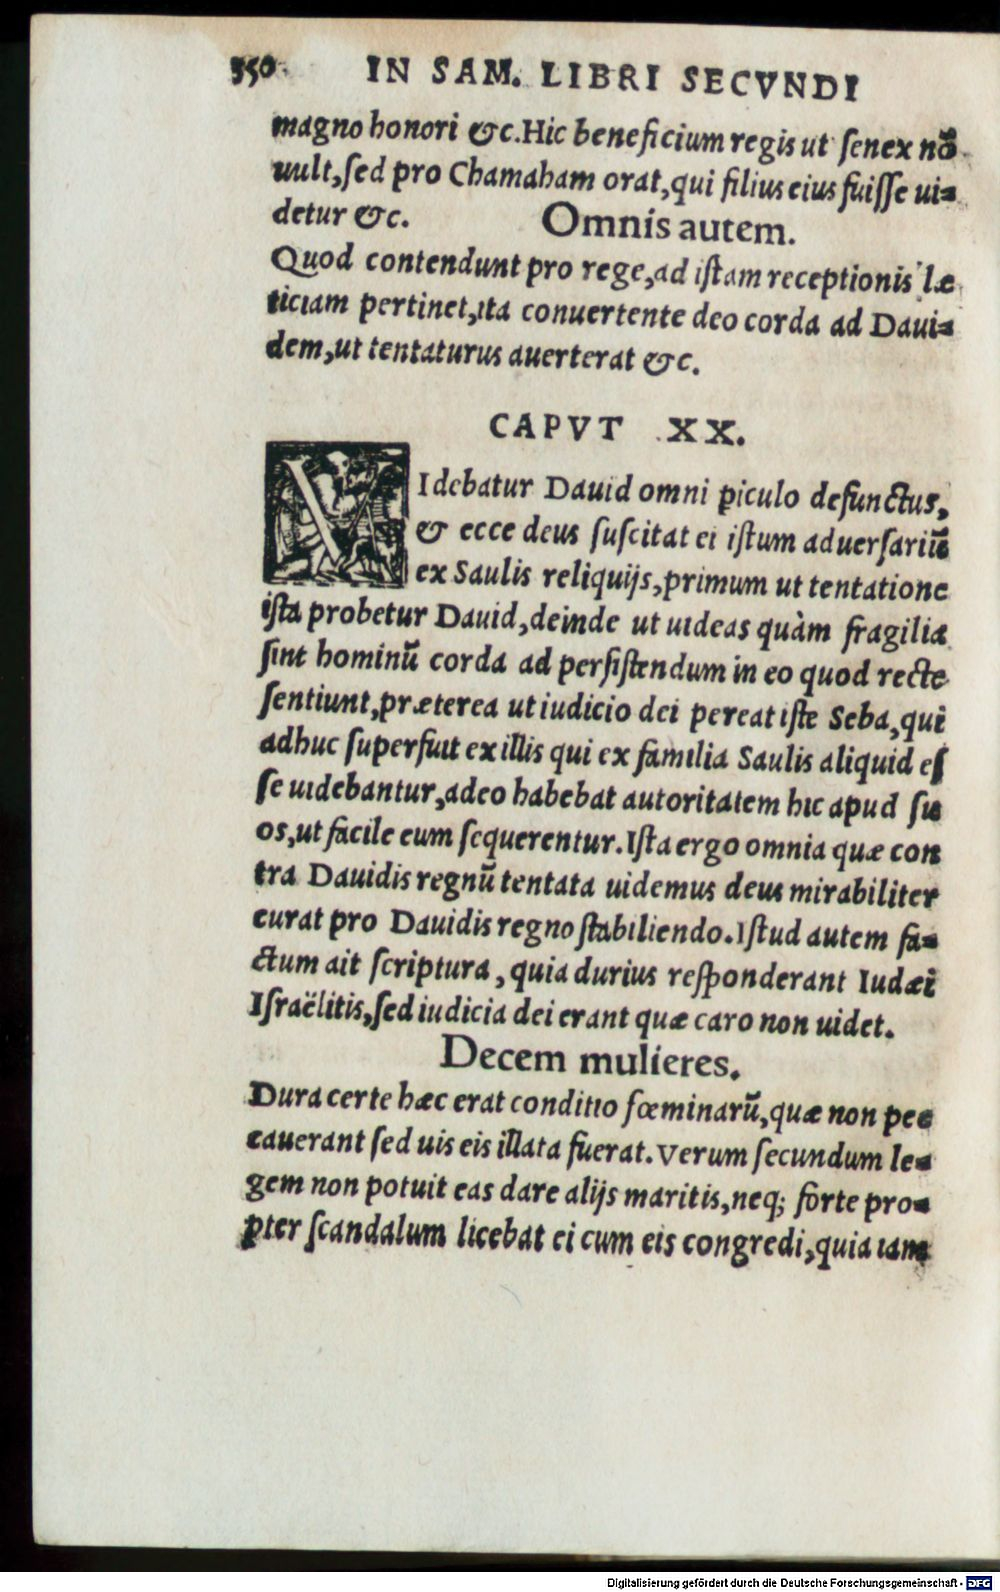 350 IN SAM. LIBRI SECVNDI
magno honori &c. Hic beneficium regis ut ſenex nõ
uult, ſed pro Chamaham orat, qui filius eius fuiſſe ui-
detur &c. Omnis autem.
Quod contendunt pro rege, ad iſtam receptionis læ
ticiam pertinet, ita conuertente deo corda ad Daui-
dem, ut tentaturus auerterat &c.
CAPVT XX.
VIdebatur Dauid omni ꝑiculo defunctus,
& ecce deus ſuſcitat ei iſtum aduerſariũ
ex Saulis reliquijs, primum ut tentatione
iſta probetur Dauid, deinde ut uideas quàm fragilia
ſint hominũ corda ad perſiſtendum in eo quod recte
ſentiunt, præterea ut iudicio dei pereat iſte Seba, qui
adhuc ſuperfuit ex illis qui ex familia Saulis aliquid eſ
ſe uidebantur, adeo habebat autoritatem hic apud ſu
os, ut facile eum ſequerentur. Iſta ergo omnia quæ con
tra Dauidis regnũ tentata uidemus deus mirabiliter
curat pro Dauidis regno ſtabiliendo. Iſtud autem fa-
ctum ait ſcriptura, quia durius reſponderant Iudæi
Iſraëlitis, ſed iudicia dei erant quæ caro non uidet.
Decem mulieres.
Dura certe hæc erat conditio fœminarũ, quæ non pec
cauerant ſed uis eis illata fuerat. Verum ſecundum le-
gem non potuit eas dare alijs maritis, neq; forte pro-
pter ſcandalum licebat ei cum eis congredi, quia iam
Digitalisierung gefördert durch die Deutsche Forschungsgemeinschaft - DFG